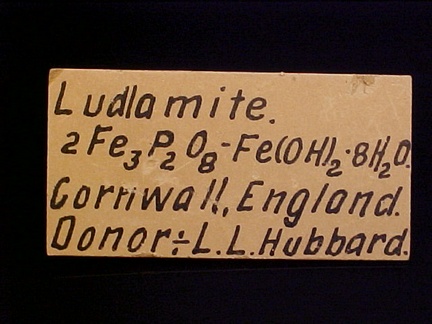 Ludlamite.
2Fe₃P₂O₈-Fe(OH)₂·8H₂O.
Cornwall, England.
Donor÷L.L.Hubbard.